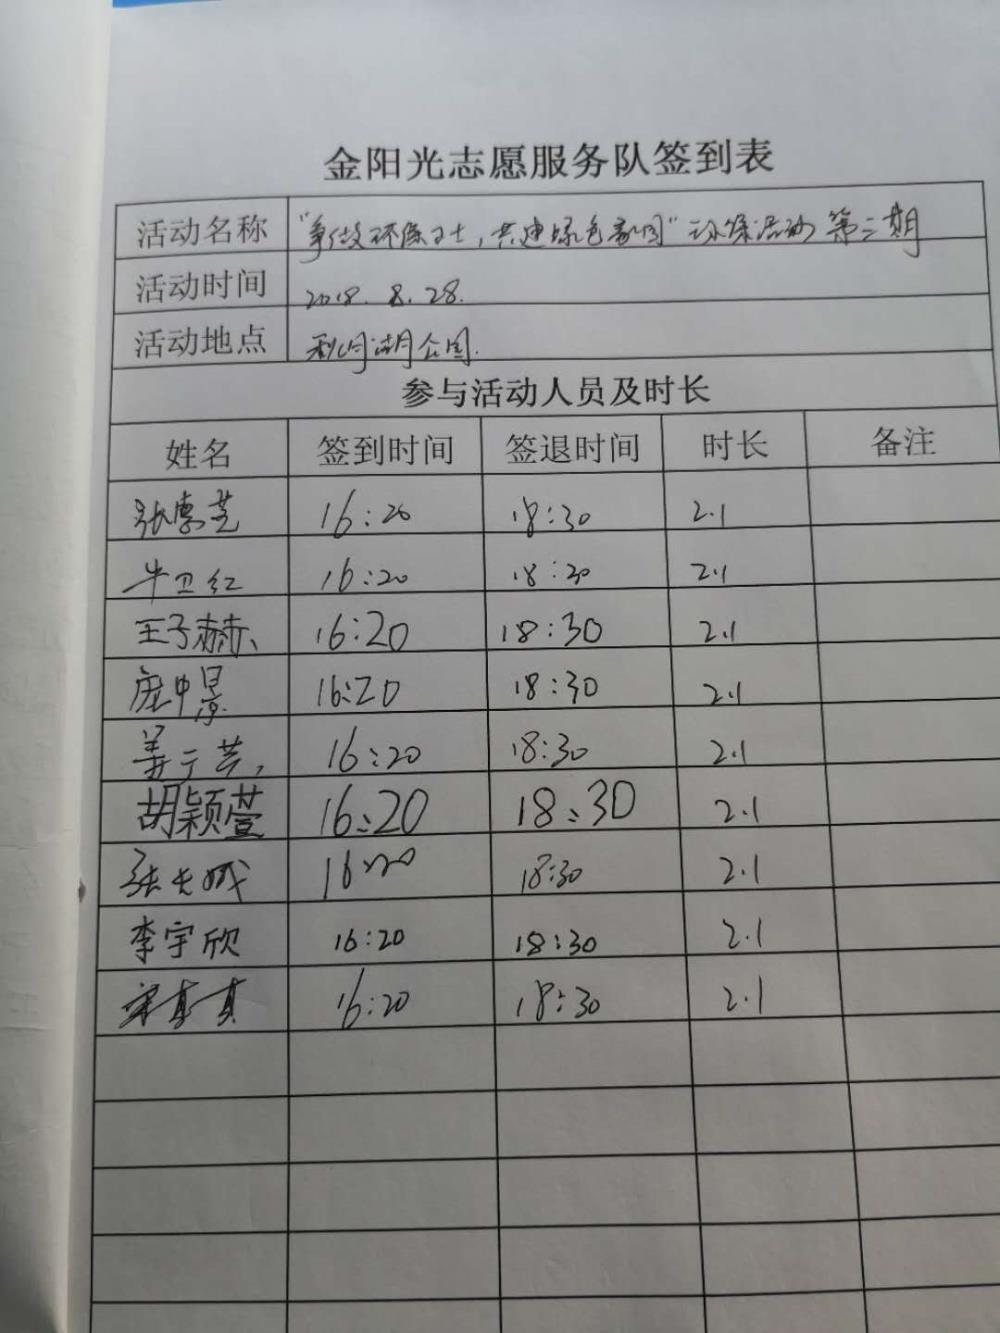 金阳光志愿服务队签到表
活动名称 "争做环保卫士，共建绿色家园"环保活动 第二期
活动时间 2018.8.28.
活动地点 湖公园.
参与活动人员及时长
姓名 签到时间 签退时间 时长 备注
张惠芝 16:20 18:30 2.1
牛卫红 16:20 18:30 2.1
王子赫 16:20 18:30 2.1
庞中景 16:20 18:30 2.1
姜 16:20 18:30 2.1
胡颖萱 16:20 18:30 2.1
张 16:20 18:30 2.1
李宇欣 16:20 18:30 2.1
16:20 18:30 2.1